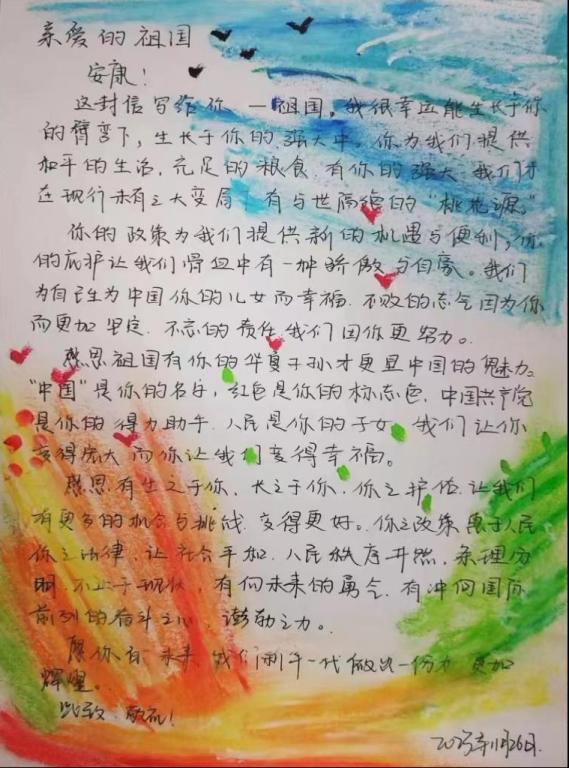 亲爱的祖国
安康！
这封信写给你 — 祖国，我很幸运能生长于你
的臂弯下，生长于你的强大中。你为我们提供
和平的生活，充足的粮食，有你的强大，我们才
在现行未有之大变局，有与世隔绝的“桃花源”
你的政策为我们提供新的机遇与便利，你
的庇护让我们骨血中有一种骄傲与自豪。我们
为自己生为中国你的儿女而幸福，不败的志气因为你
而更加坚定，不忘的责任，我们因你更努力。
感恩祖国有你的华夏子孙才更显中国的魅力。
“中国”是你的名字，红色是你的标志色，中国共产党
是你的得力助手，人民是你的子女，我们让你
变得庞大而你让我们变得幸福。
感恩有生之于你，长之于你，你之护佑，让我们
有更多的机会与挑战，变得更好。你之政策惠于人民
你之法律，让社会平和，人民秩序井然，条理分
明，不止于现状，有向未来的勇气，有冲向国际
前列的奋斗之心，澎勃之力。
愿你有未来，我们新一代做出一份力，更加
辉煌。
此致 敬礼！
11月26日